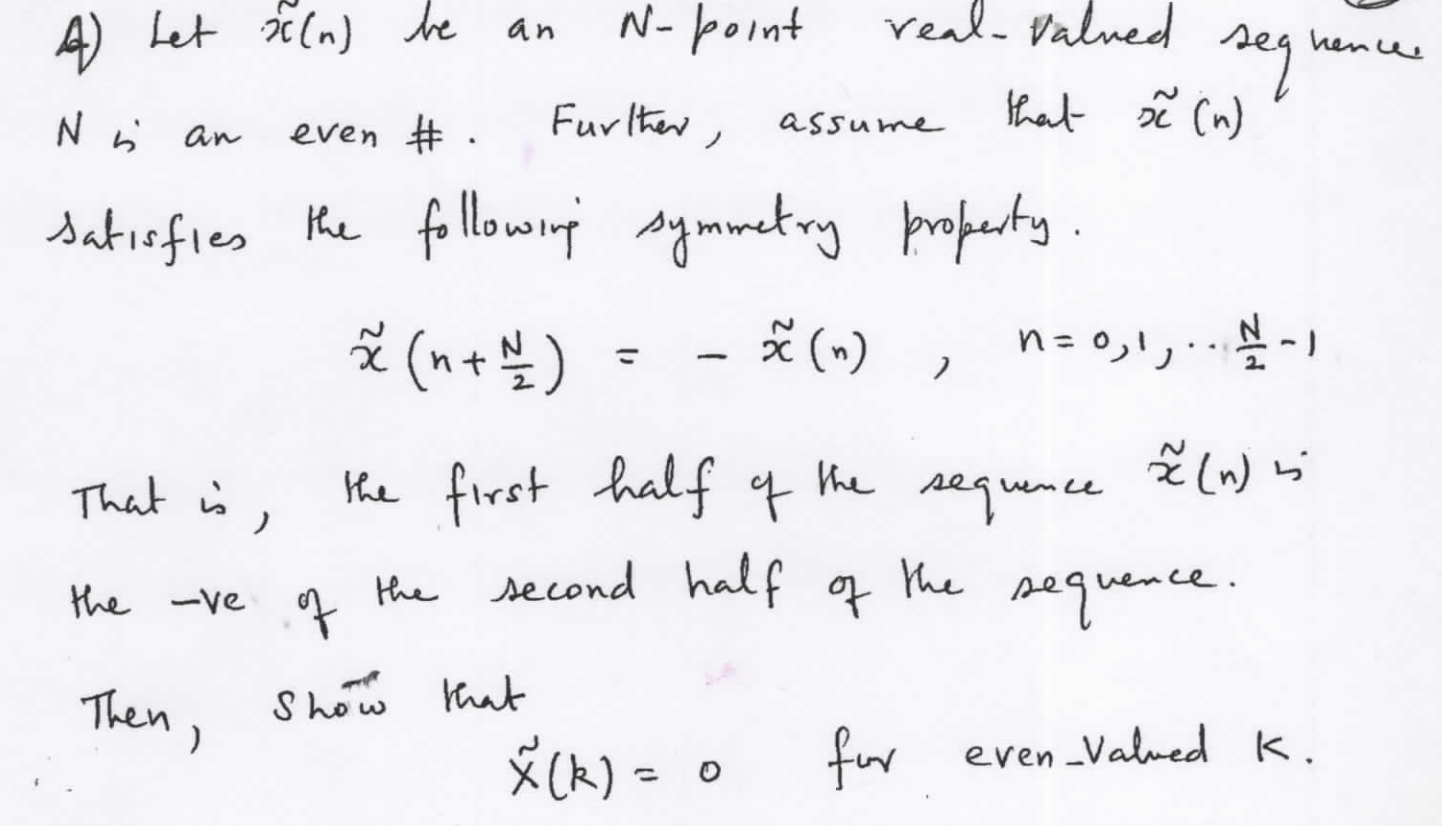 A) Let x̃(n) be an N-point real-valued sequence
N is an even #. Further, assume that x̃(n)
satisfies the following symmetry property.
x̃(n+N/2) = - x̃(n), n=0,1,..N/2-1
That is, the first half of the sequence x̃(n) is
the -ve of the second half of the sequence.
Then, show that
X̃(k) = 0 for even-valued k.